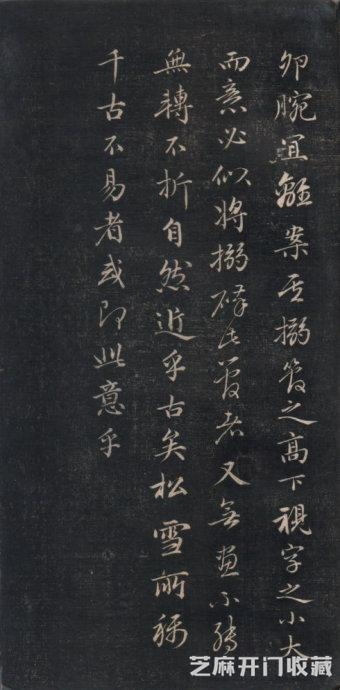 卯腕宜離案其搦管之高下視字之小大
而意必似將搦碎此管者又無畫不轉
無轉不折自然近乎古矣松雪所稱
千古不易者或即此意乎
芝麻开门收藏